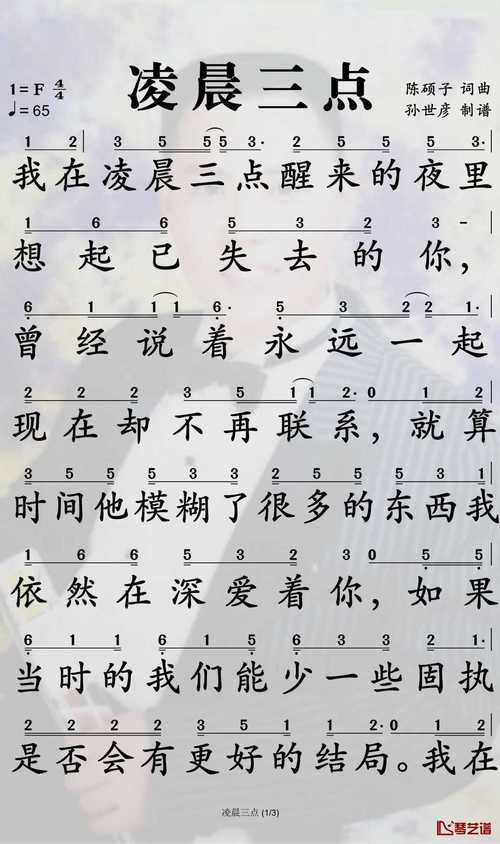 凌晨三点
1=F 4/4
♩=65
陈硕子 词曲
孙世彦 制谱
1 2 3 5 5 5 3· 2 2 3 5 5 3·
我在凌晨三点醒来的夜里
1 6 6 5 3 2 3 -
想起已失去的你，
6 1 1 1 1 6· 5 3 2 2 1·
曾经说着永远一起
2 2 2 3 5 1 1 2· 0 1 2
现在却不再联系，就算
3 5 5 5 3 3 2 2 3 5 5 5 3 1
时间他模糊了很多的东西我
1 6 6 5 3 2 3 0 5 5
依然在深爱着你，如果
6 1 1 6 1 5 6 3 3 2 1·
当时的我们能少一些固执
2 2 2 2 3 5 1 1 2· 0 1 2
是否会有更好的结局。我在
凌晨三点 (1/3)
琴艺谱